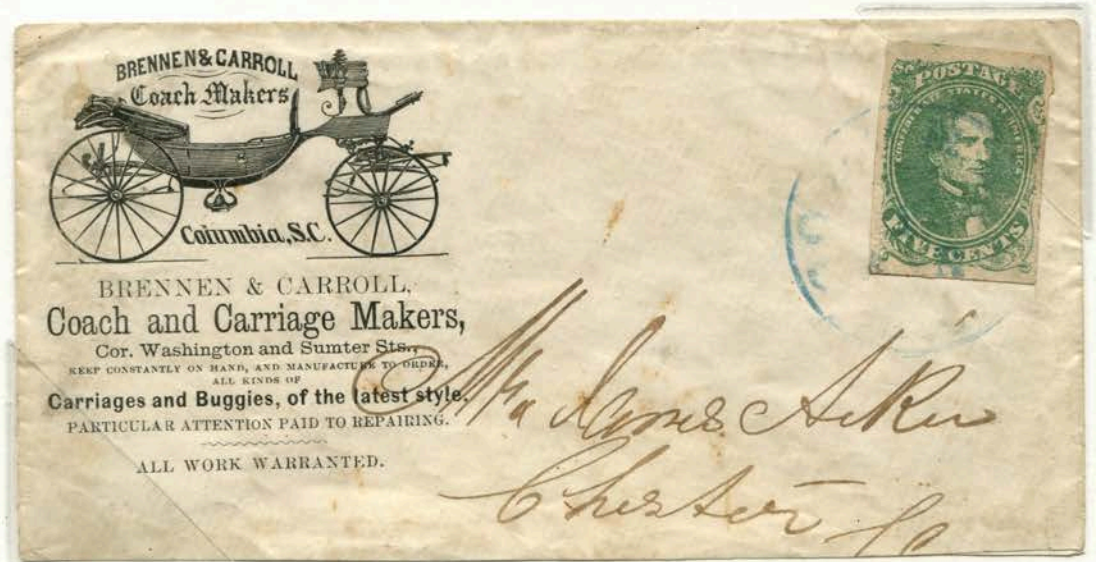 BRENNEN & CARROLL
Coach Makers
Columbia, S.C.
BRENNEN & CARROLL,
Coach and Carriage Makers,
Cor. Washington and Sumter Sts.,
KEEP CONSTANTLY ON HAND, AND MANUFACTURE TO ORDER,
ALL KINDS OF
Carriages and Buggies, of the latest style.
PARTICULAR ATTENTION PAID TO REPAIRING.
ALL WORK WARRANTED.
POSTAGE
CONFEDERATE STATES OF AMERICA
FIVE CENTS
James
Chester